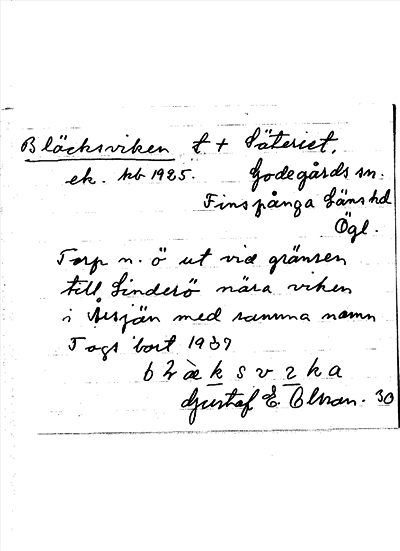 Bläcksviken t. + Säteriet,
ek. kb 1925. Godegårds sn.
Finspånga läns hd
Ögl.
Torp n. ö ut vid gränsen
till Sinderö nära viken
i sjön med samma namn
Togs bort 1937
Gustaf E Olsson. 30